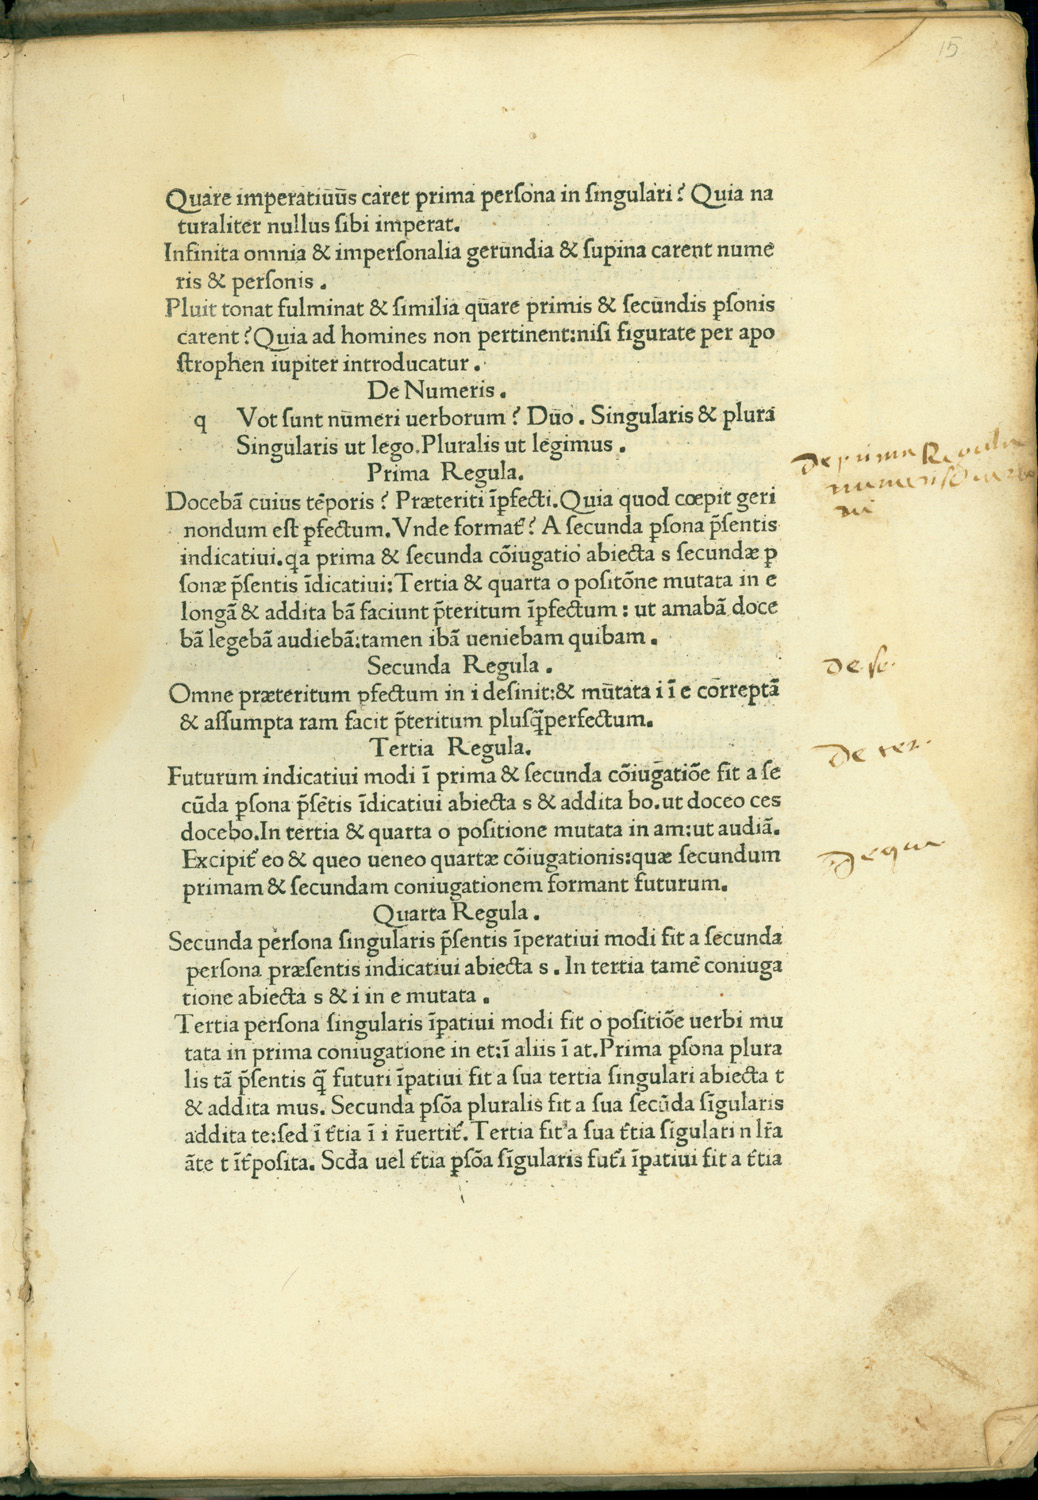 15
Quare imperatiuus caret prima persona in singulari? Quia na
turaliter nullus sibi imperat.
Infinita omnia & impersonalia gerundia & supina carent nume
ris & personis.
Pluit tonat fulminat & similia quare primis & secundis ꝑsonis
carent? Quia ad homines non pertinent:nisi figurate per apo
strophen iupiter introducatur.
De Numeris.
q Vot sunt numeri uerborum? Duo. Singularis & plura
Singularis ut lego.Pluralis ut legimus.
Prima Regula.
Docebã cuius tẽporis? Præteriti ĩꝑfecti.Quia quod cœpit geri
nondum est ꝑfectum.Vnde format᷑? A secunda ꝑsona p̃sentis
indicatiui.qa prima & secunda cõiugatio abiecta s secundæ ꝑ
sonæ p̃sentis ĩdicatiui:Tertia & quarta o positõne mutata in e
longã & addita bã faciunt p̃teritum ĩꝑfectum: ut amabã doce
bã legebã audiebã:tamen ibã ueniebam quibam.
Secunda Regula.
Omne præteritum ꝑfectum in i desinit:& mũtata i ĩ e correptã
& assumpta ram facit p̃teritum plusq̃perfectum.
Tertia Regula.
Futurum indicatiui modi ĩ prima & secunda cõiugatiõe fit a se
cũda ꝑsona p̃sẽtis ĩdicatiui abiecta s & addita bo.ut doceo ces
docebo.In tertia & quarta o positione mutata in am:ut audiã.
Excipit᷑ eo & queo ueneo quartæ cõiugationis:quæ secundum
primam & secundam coniugationem formant futurum.
Quarta Regula.
Secunda persona singularis p̃sentis ĩperatiui modi fit a secunda
persona præsentis indicatiui abiecta s. In tertia tamẽ coniuga
tione abiecta s & i in e mutata.
Tertia persona singularis ĩꝑatiui modi fit o positiõe uerbi mu
tata in prima coniugatione in et:ĩ aliis ĩ at.Prima ꝑsona plura
lis tã p̃sentis q̃ futuri ĩꝑatiui fit a sua tertia singulari abiecta t
& addita mus. Secunda ꝑsõa pluralis fit a sua secũda sĩgularis
addita te:sed ĩ t᷑tia ĩ i r̃uertit᷑. Tertia fit a sua t᷑tia sĩgulari n lr̃a
ãte t ĩt᷑posita. Scd̃a uel t᷑tia ꝑsõa sĩgularis fut᷑i ĩꝑatiui fit a t᷑tia
de prima Regula
de se.
de ter.
de qua